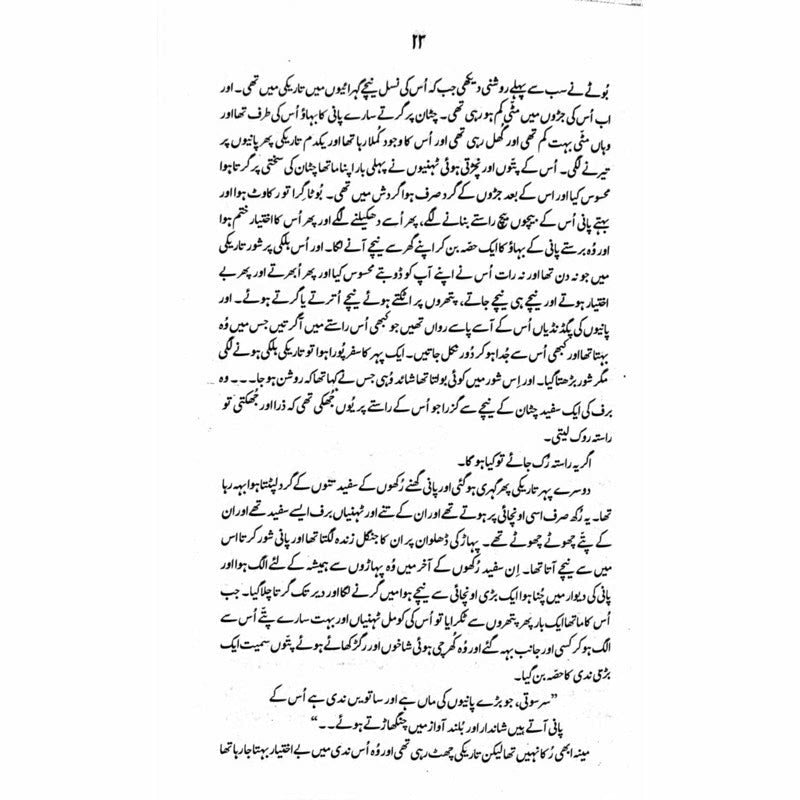 ۲۳
بُوٹے نے سب سے پہلے روشنی دیکھی جب کہ اُس کی نسل نیچے گہرائیوں میں تاریکی میں تھی۔ اور
اب اُس کی جڑوں میں مٹّی کم ہو رہی تھی۔ چٹان پر گرتے سارے پانی کا بہاؤ اُس کی طرف تھا اور
وہاں مٹّی بہت کم تھی اور گُھل رہی تھی اور اُس کا وجود کُملا رہا تھا اور یکدم تاریکی پھر پانیوں پر
تیرنے لگی۔ اُس کے پتّوں اور نچڑتی ہوئی ٹہنیوں نے پہلی بار اپنا ماتھا چٹان کی سختی پر گرتا ہوا
محسوس کیا اور اس کے بعد جڑوں کے گرد صرف ہوا گردش میں تھی۔ بُوٹا گِرا تو رکاوٹ ہوا اور
بہتے پانی اُس کے بیچوں بیچ راستے بنانے لگے، پھر اُسے دھکیلنے لگے اور پھر اُس کا اختیار ختم ہوا
اور وُہ برستے پانی کے بہاؤ کا ایک حصّہ بن کر اپنے گھر سے نیچے آنے لگا۔ اور اُس ہلکی پر شور تاریکی
میں جو نہ دن تھا اور نہ رات اُس نے اپنے آپ کو ڈوبتے محسوس کیا اور پھر اُبھرتے اور پھر بے
اختیار ہوتے اور نیچے ہی نیچے جاتے، پتھروں پر اٹکتے ہوئے نیچے اُترتے یا گرتے ہوئے۔ اور
پانیوں کی پگڈنڈیاں اُس کے آسے پاسے رواں تھیں جو کبھی اُس راستے میں آ گرتیں جس میں وُہ
بہتا تھا اور کبھی اُس سے جُدا ہو کر دُور نکل جاتیں۔ ایک پہر کا سفر پُورا ہوا تو تاریکی ہلکی ہونے لگی
مگر شور بڑھتا گیا۔ اور اِس شور میں کوئی بولتا تھا شائد وُہی جس نے کہا تھا کہ روشن ہو جا۔۔۔ وہ
برف کی ایک سفید چٹان کے نیچے سے گزرا جو اُس کے راستے پر یُوں جُھکی تھی کہ ذرا اور جُھکتی تو
راستہ روک لیتی۔
اگر یہ راستہ رُک جائے تو کیا ہو گا۔
دوسرے پہر تاریکی پھر گہری ہو گئی اور پانی گھنے رُکھوں کے سفید تنوں کے گرد لپٹتا ہوا بہہ رہا
تھا۔ یہ رُکھ صرف اسی اونچائی پر ہوتے تھے اور ان کے تنے اور ٹہنیاں برف ایسے سفید تھے اور ان
کے پتّے چھوٹے چھوٹے تھے۔ پہاڑ کی ڈھلوان پر ان کا جنگل زندہ لگتا تھا اور پانی شور کرتا اس
میں سے نیچے آتا تھا۔ اِن سفید رُکھوں کے آخر میں وُہ پہاڑوں سے ہمیشہ کے لئے الگ ہوا اور
پانی کی دیوار میں چُنا ہوا ایک بڑی اونچائی سے نیچے ہوا میں گرنے لگا اور دیر تک گرتا چلا گیا۔ جب
اُس کا ماتھا ایک بار پھر پتھروں سے ٹکرایا تو اُس کی کومل ٹہنیاں اور بہت سارے پتّے اُس سے
الگ ہو کر کسی اور جانب بہہ گئے اور وُہ کُھرچی ہوئی شاخوں اور رگڑ کھائے ہوئے پتّوں سمیت ایک
بڑی ندی کا حصّہ بن گیا۔
”سرسوتی، جو بڑے پانیوں کی ماں ہے اور ساتویں ندی ہے اُس کے
پانی آتے ہیں شاندار اور بُلند آواز میں چنگھاڑتے ہوئے۔۔“
مینہ ابھی رُکا نہیں تھا لیکن تاریکی چھٹ رہی تھی اور وُہ اُس ندی میں بے اختیار بہتا جا رہا تھا